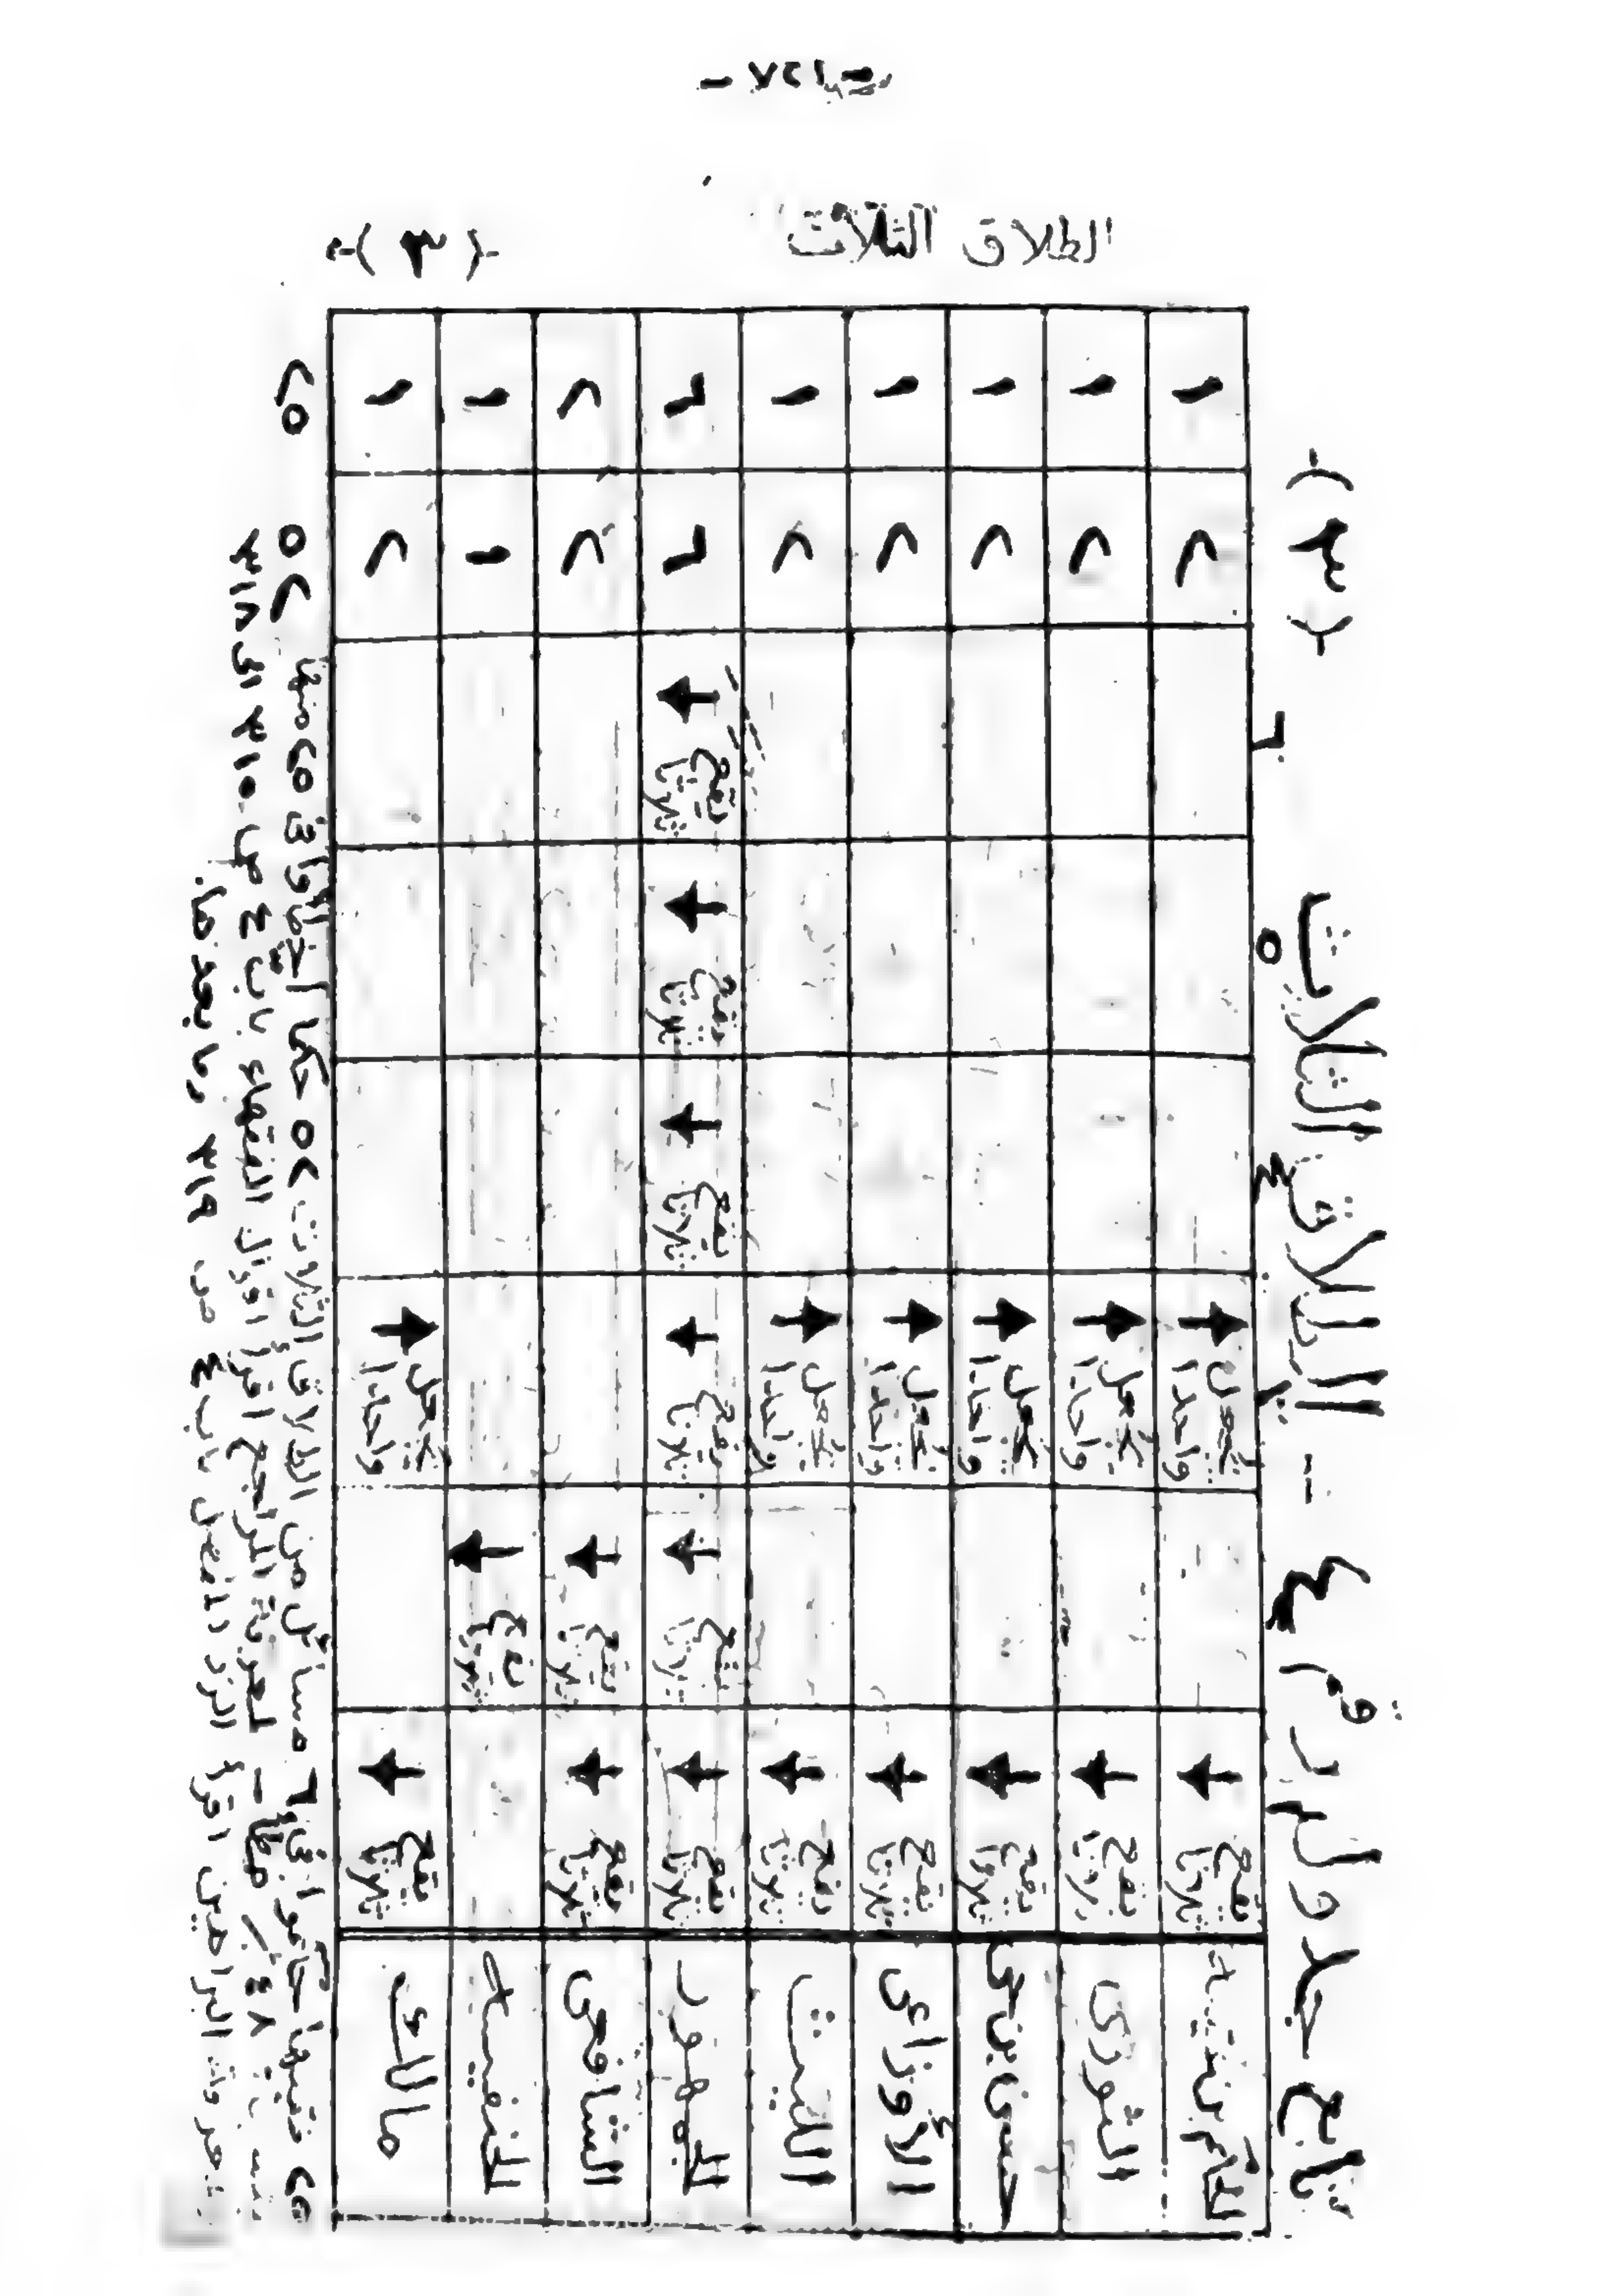 - ١٢٧ -
الطلاق الثلاث -( ٣ )-
تابع جدول رقم ٤ -- الطلاق الثلاث -( ٣ )-
٣ ٤ ٥ ٦
الحكم بن عتيبة يقع ثلاثا يجعل واحدا ٢ ١
الثورى يقع ثلاثا يجعل واحدا ٢ ١
حسن بن حى يقع ثلاثا يجعل واحدا ٢ ١
الأوزاعى يقع ثلاثا يجعل واحدا ٢ ١
الليث يقع ثلاثا يجعل واحدا ٢ ١
الجمهور يقع ثلاثا يقع ثلاثا يقع ثلاثا يقع ثلاثا يقع ثلاثا يقع ثلاثا ٦ ٦
الشافعى يقع ثلاثا يقع ثلاثا ٢ ٢
الحنفيـة يقع ثلاثا ١ ١
مالك يقع ثلاثا يجعل واحدا ٢ ١
٥٢ ٢٥
٢٥ فقيها حكموا فى ٦ مسائل من الطلاق الثلاث ٥٢ حكما أخطأوا فى ٢٥ منها
بنسبة ٤٨٪ خطأ - لمعرفة المراجع اقرأ اقوال الفقهاء باب ٤ ص ٣١٥ الى ٣١٨
ولمعرفة البراهين اقرأ الرد المفصل باب ٤ ص ٣١٩ وما بعدها.